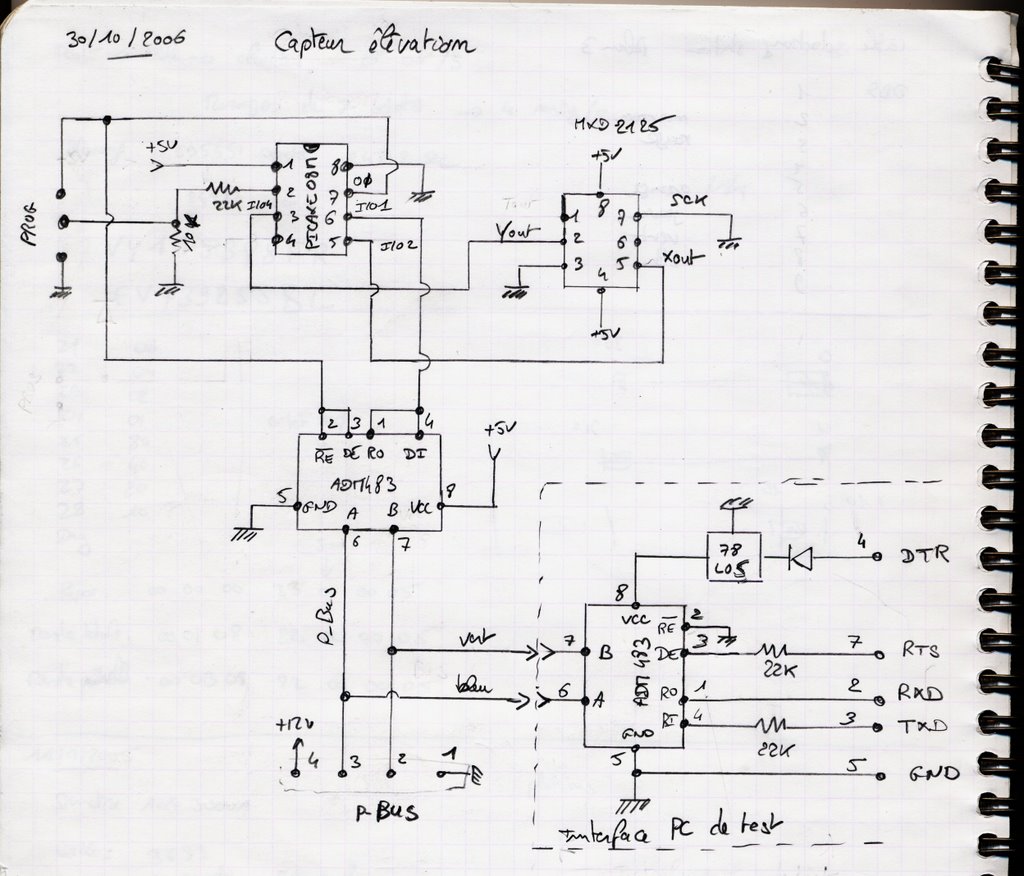 30/10/2006
Capteur élévation
MXD2125
+5V
+5V
1 2 3 4
PICAXE08M
8 7 6 5
0Ø
I/O1
I/O2
I/O4
22K
10K
PROG
Yout
1 2 3 4
8 7 6 5
SCK
Xout
+5V
2 3 1 4
RE DE RO DI
ADM483
5 GND
A B VCC 8
6 7
+5V
P-Bus
vert
bleu
+12V
4 3 2 1
P-BUS
78
L05
4 DTR
8
VCC
RE 2
7 B
DE 3
22K
7 RTS
ADM483
6 A
RO 1
2 RXD
4
22K
3 TXD
GND
5
5 GND
Interface PC de test